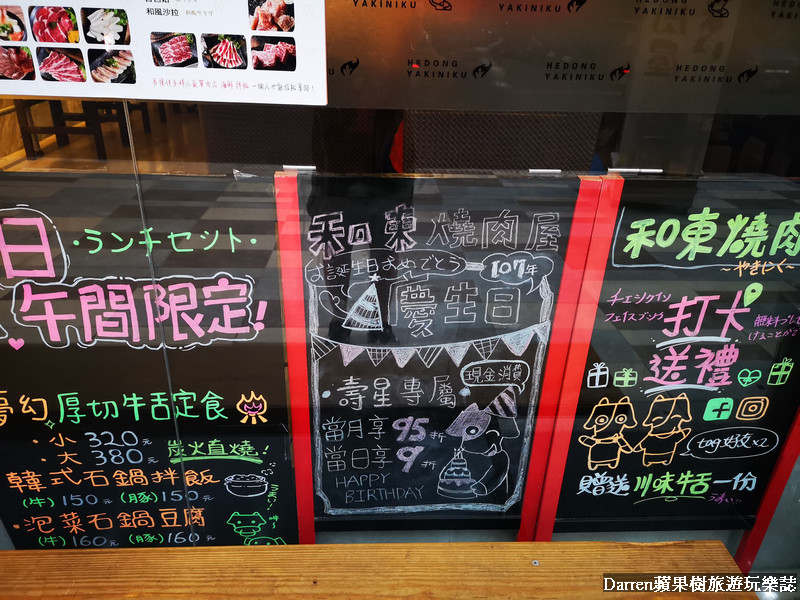 和風沙拉
HEDONG
YAKINIKU
HEDONG
YAKINIKU
HEDONG
YAKINIKU
日
・ランチセット・
午間限定!
夢幻厚切牛舌定食
・小 320元
・大 380元
炭火直燒!
韓式石鍋拌飯
(牛) 150元 (豚) 150元
・泡菜石鍋豆腐
(牛) 160元 (豚) 160元
和東燒肉屋
お誕生日おめでとう
107年
慶生日
現金消費
・壽星專屬・
當月享 95折
當日享 9折
HAPPY
BIRTHDAY
和東燒肉
～やきにく～
チェックイン
フェイスブック
打卡
送禮
tag好友x2
贈送川味牛舌一份
Darren蘋果樹旅遊玩樂誌